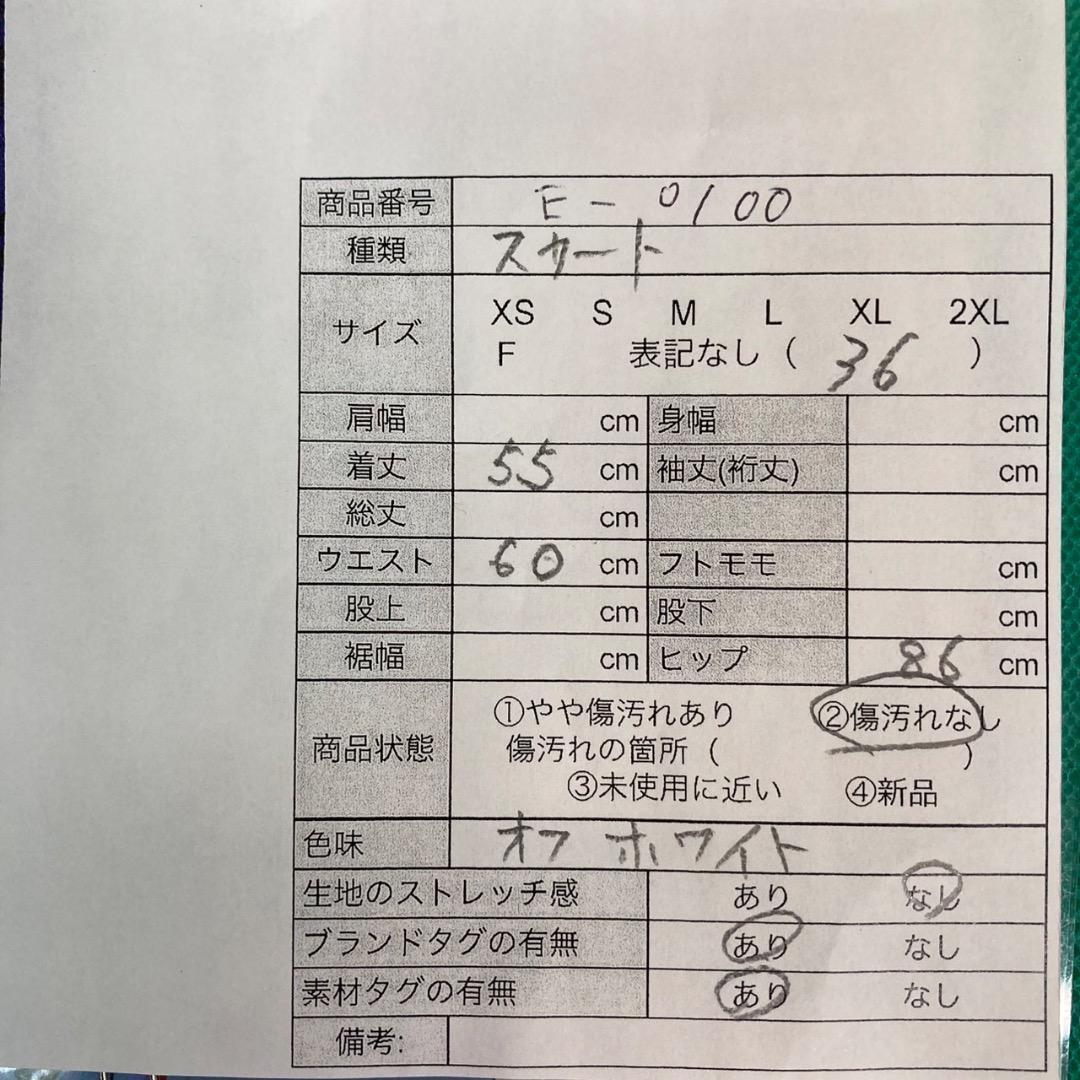 商品番号 E-0100
種類 スカート
サイズ XS S M L XL 2XL
F 表記なし ( 36 )
肩幅 cm 身幅 cm
着丈 55 cm 袖丈(裄丈) cm
総丈 cm
ウエスト 60 cm フトモモ cm
股上 cm 股下 cm
裾幅 cm ヒップ 86 cm
商品状態 ①やや傷汚れあり ②傷汚れなし
傷汚れの箇所 ( )
③未使用に近い ④新品
色味 オフホワイト
生地のストレッチ感 あり なし
ブランドタグの有無 あり なし
素材タグの有無 あり なし
備考: